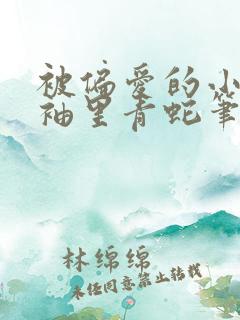 被偏爱的小
袖里青蛇筆
林绵绵
未经同意禁止转载